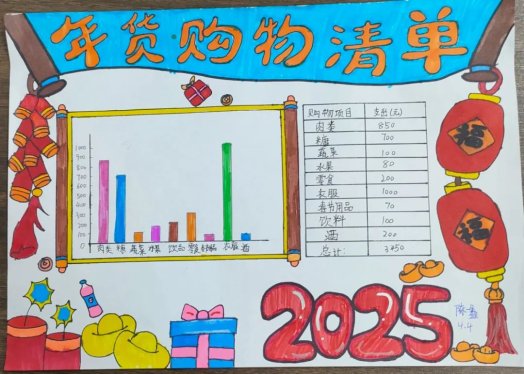 年货购物清单
购物项目 支出(元)
肉类 850
糖 700
蔬菜 100
水果 80
零食 200
衣服 1000
春节用品 70
饮料 100
酒 200
总计 3450
1000
900
800
700
600
500
400
300
200
100
0
肉类 糖 蔬菜 水果 饮料 零食 衣服 酒
福
福
2025
4.4